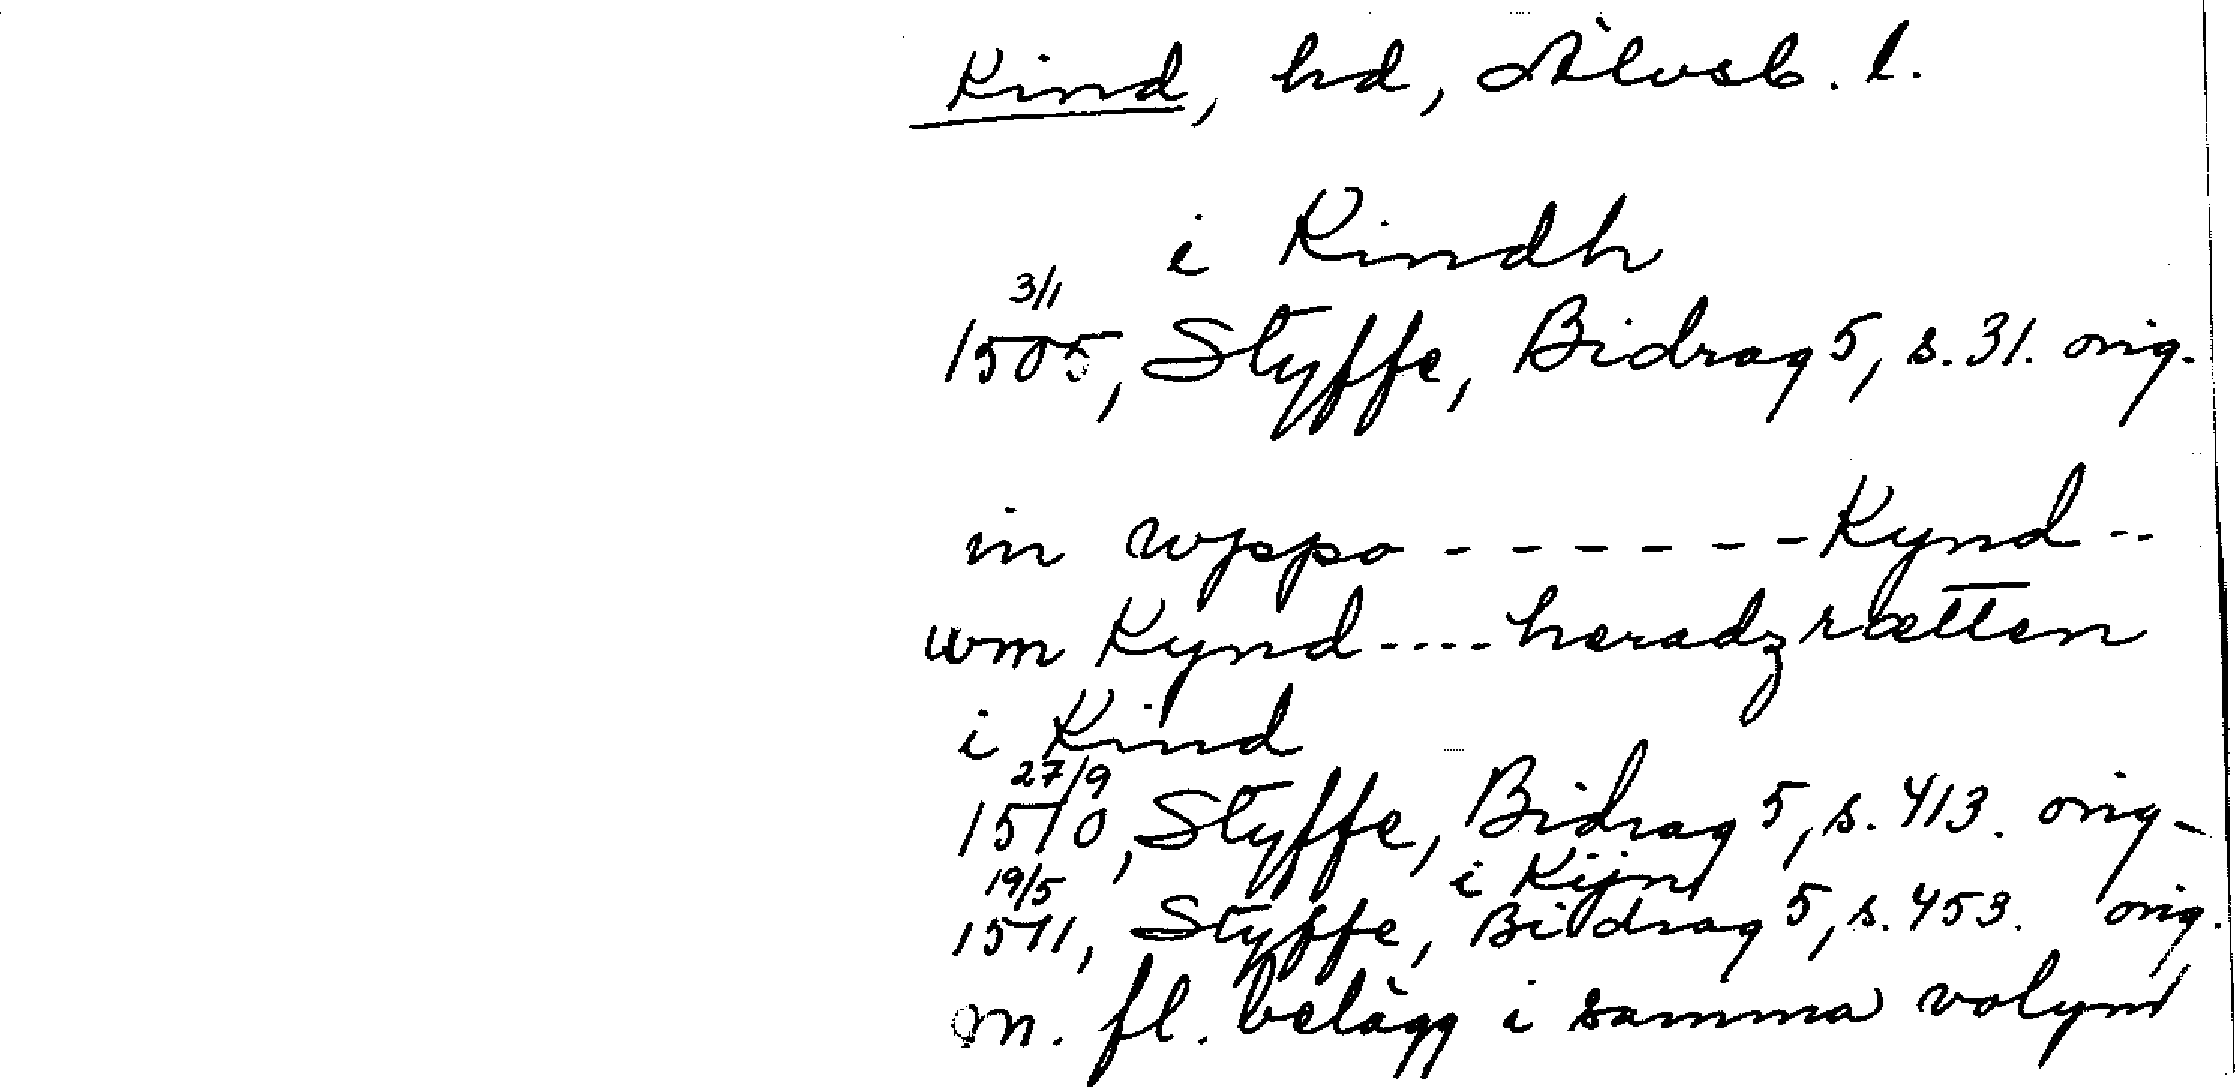 Kind, hd, Älvsb. l.
i Kindh
3/1
1505, Styffe, Bidrag 5, s. 31. orig.
in wppo - - - - - - - Kynd --
wm Kynd ---- heradz rætten
i Kind
27/9
1510, Styffe, Bidrag 5, s. 413. orig.
i Kijn
19/5
1511, Styffe, Bidrag 5, s. 453. orig.
m. fl. belägg i samma volym